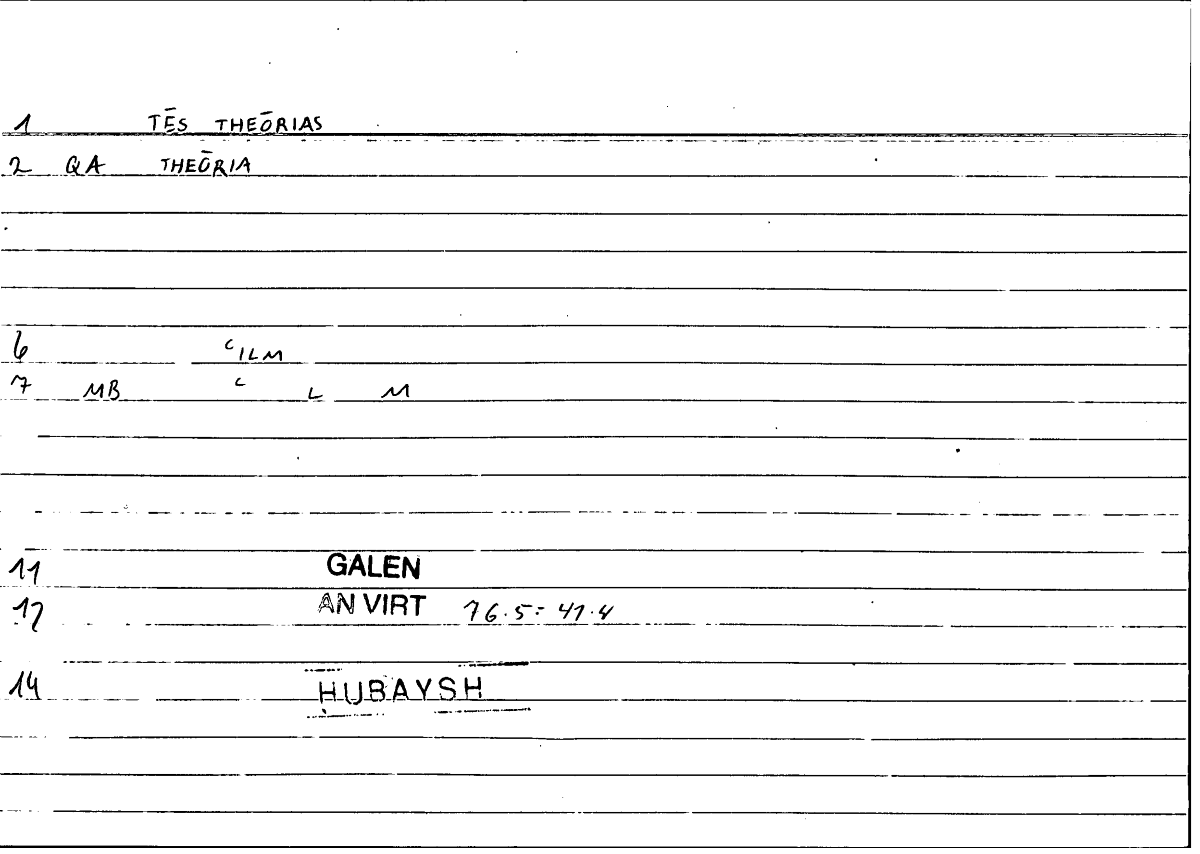 1 TĒS THEŌRIAS
2 QA THEŌRIA
6 ʿILM
7 MB ʿ L M
11 GALEN
12 AN VIRT 76.5 = 41.4
14 ḤUBAYSH